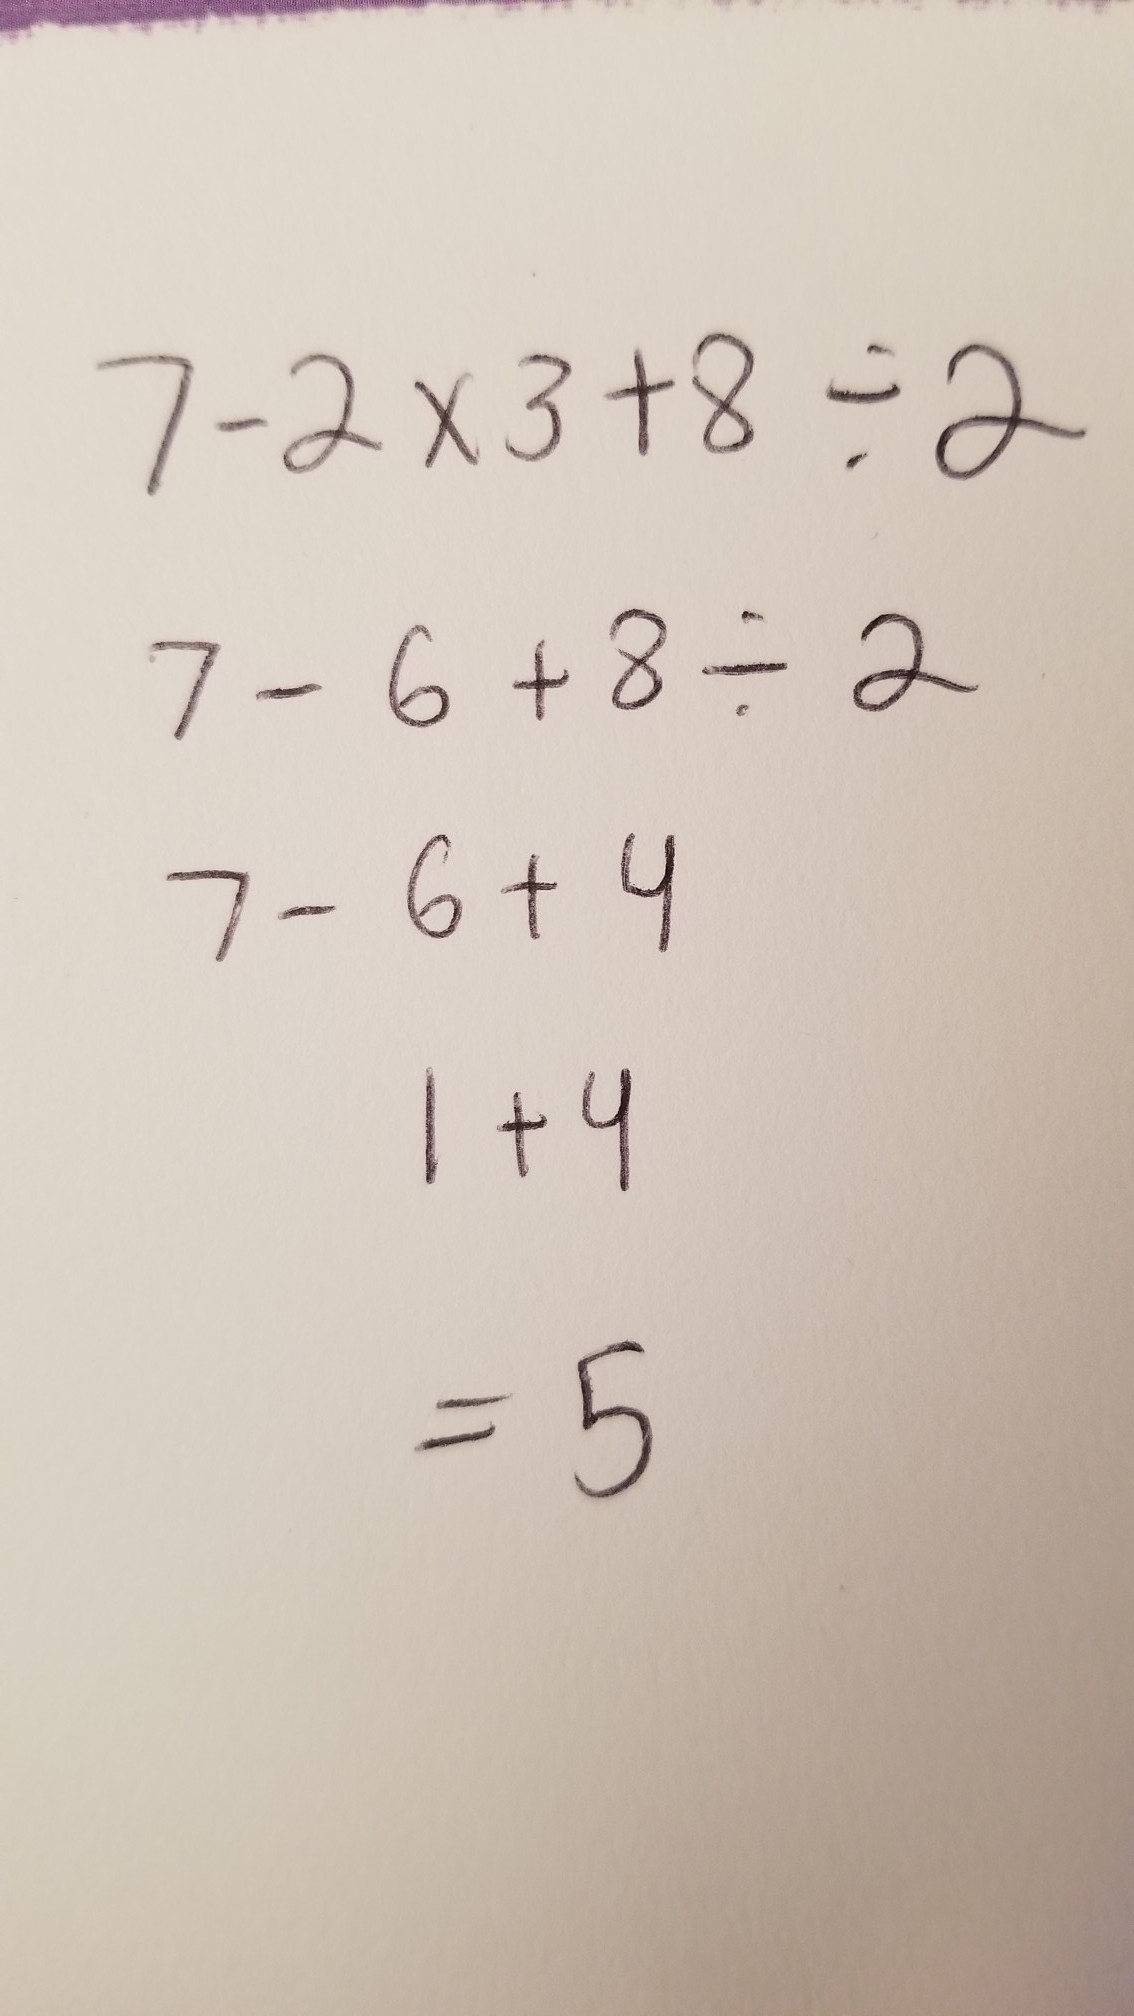 7-2×3+8÷2
7-6+8÷2
7-6+4
1+4
=5